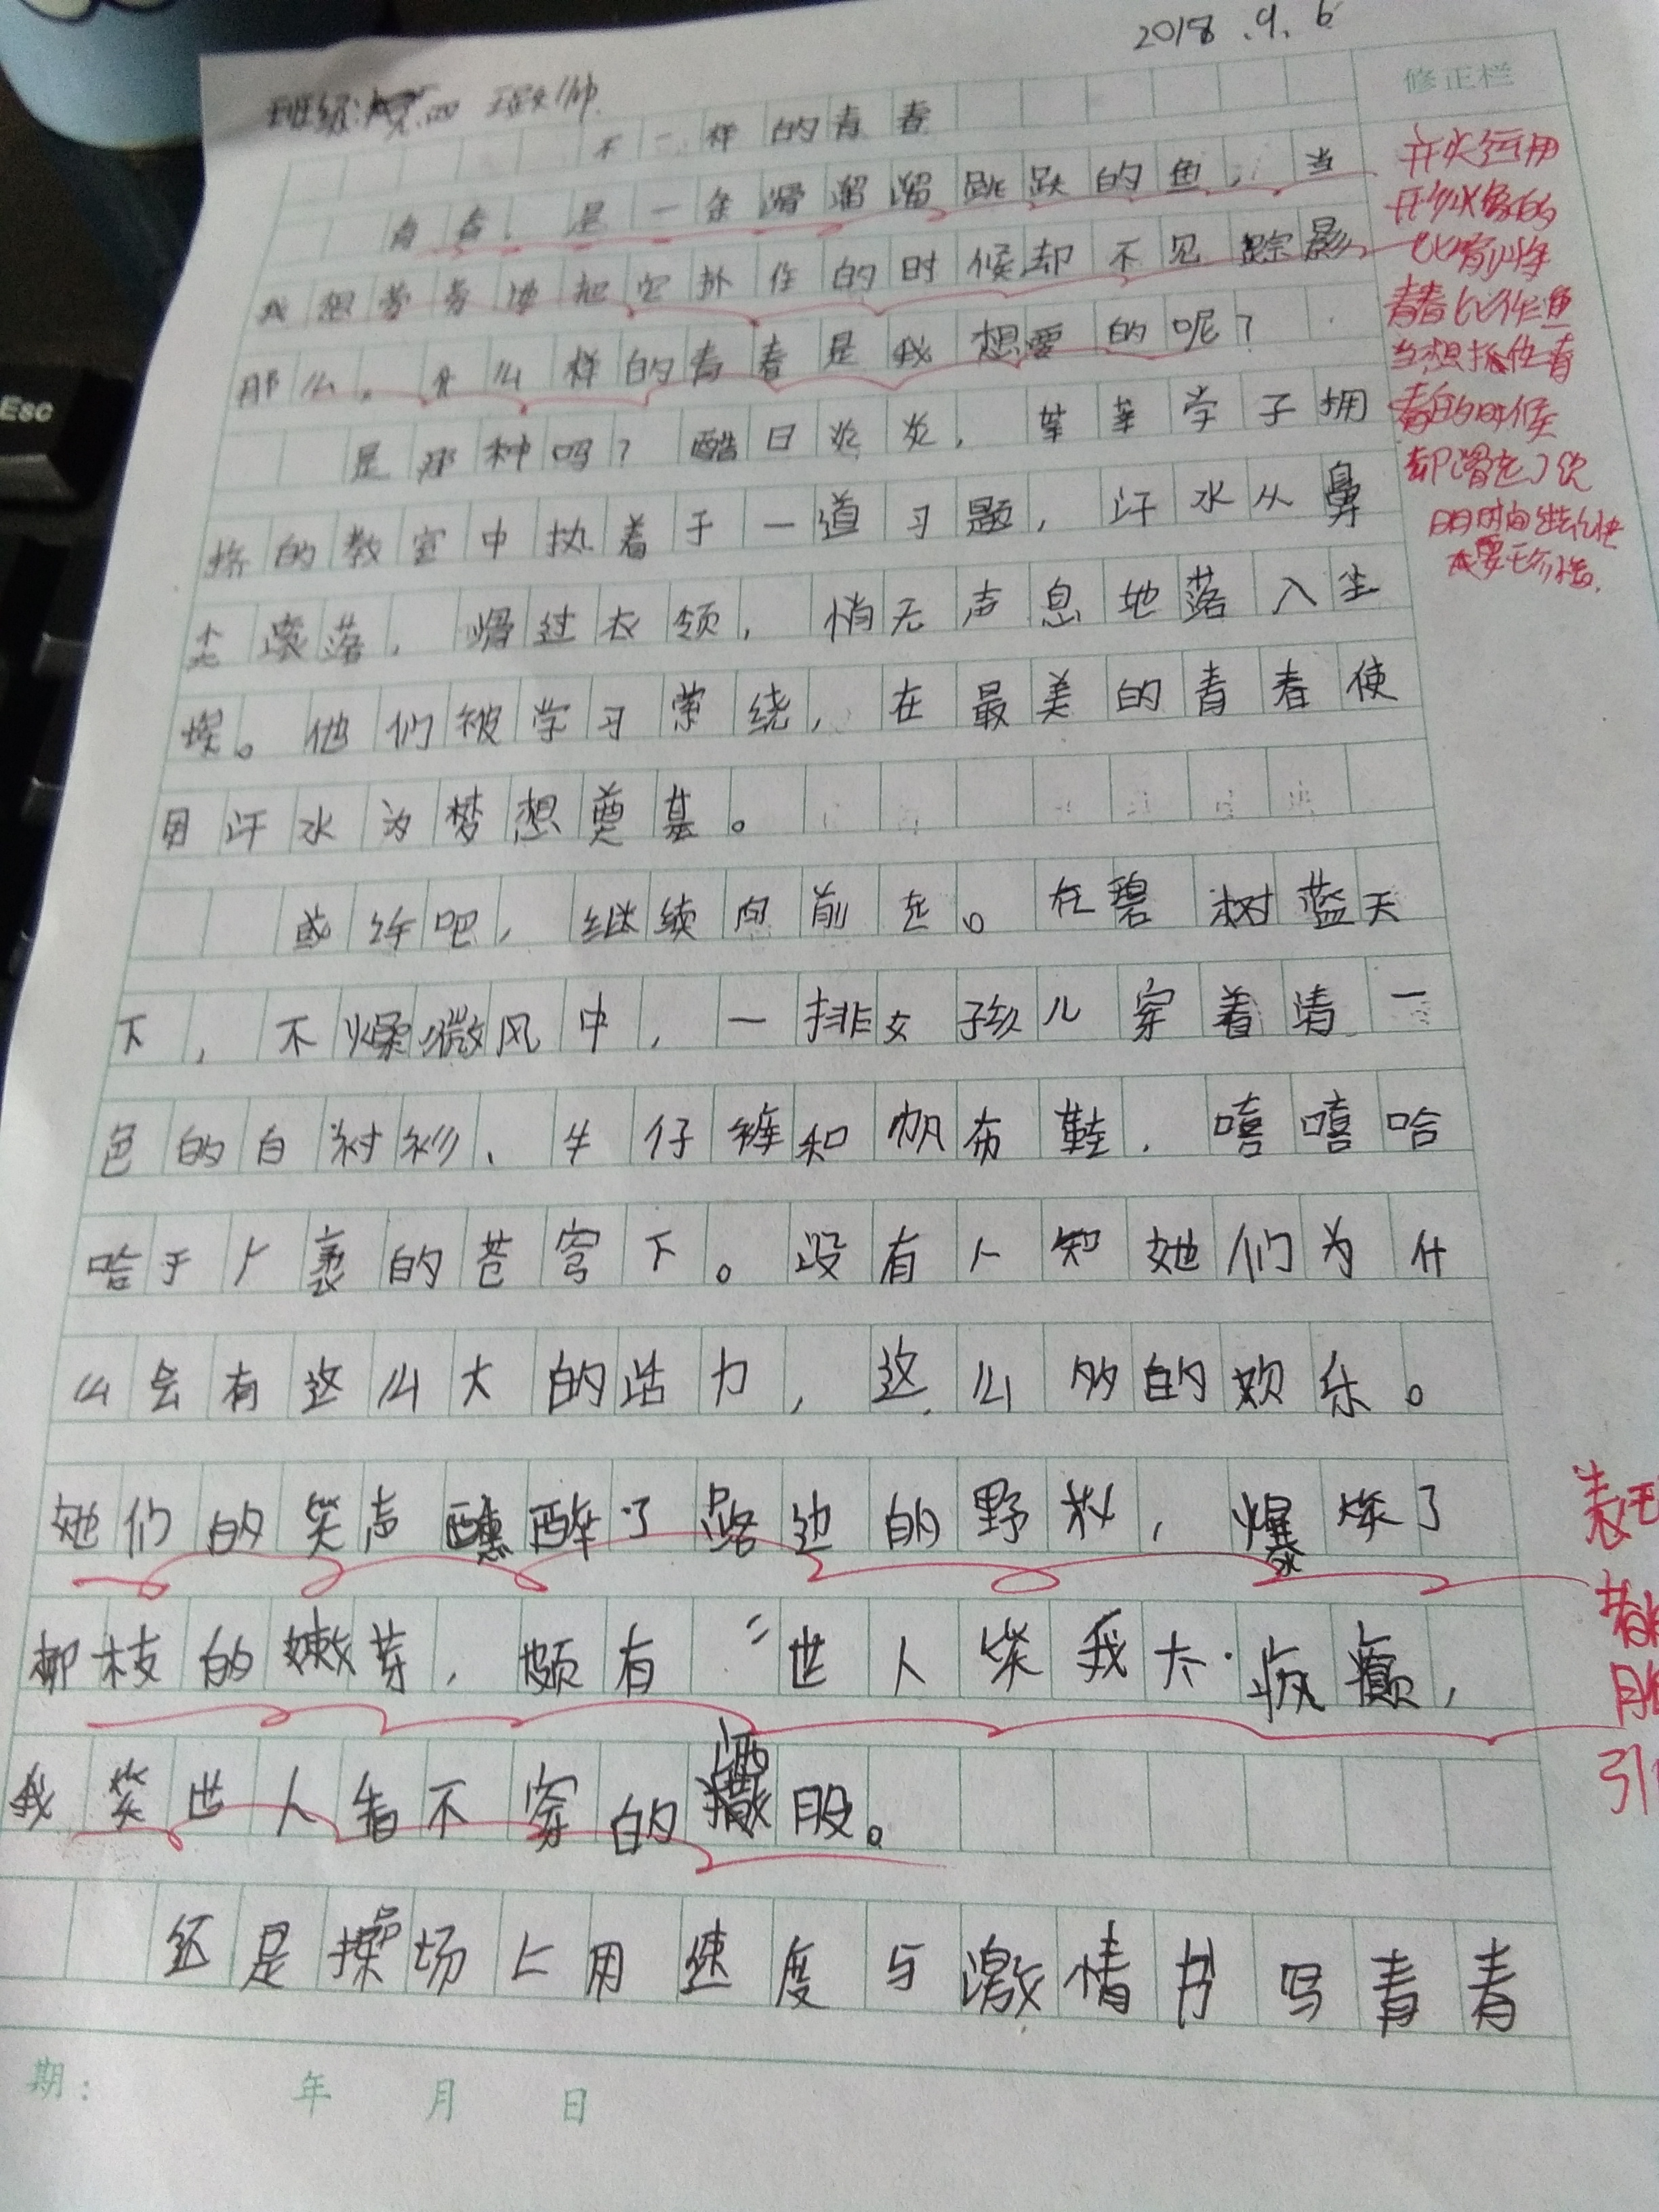 2018.9.6
修正栏
班级:
不一样的青春
青春,是一条滑溜溜跳跃的鱼,当
我想劳劳地把它扑住的时候却不见踪影
那么,什么样的青春是我想要的呢?
是那种吗?酷日炎炎,莘莘学子拥
挤的教室中执着于一道习题,汗水从鼻
尖滚落,滑过衣领,悄无声息地落入尘
埃。他们被学习萦绕,在最美的青春使
用汗水为梦想奠基。
或许吧,继续向前走。在碧树蓝天
下,不燥微风中,一排女孩儿穿着清一
色的白衬衫、牛仔裤和帆布鞋,嘻嘻哈
哈于广袤的苍穹下。没有人知她们为什
么会有这么大的活力,这么多的欢乐。
她们的笑声醺醉了路边的野花,爆炸了
柳枝的嫩芽,颇有“世人笑我太疯癫,
我笑世人看不穿的洒脱。
还是操场上用速度与激情书写青春
开头运用
形象的
比喻将
青春比作鱼
当想抓住青
春的时候
却滑走了说
明时间
要珍惜.
期: 年 月 日